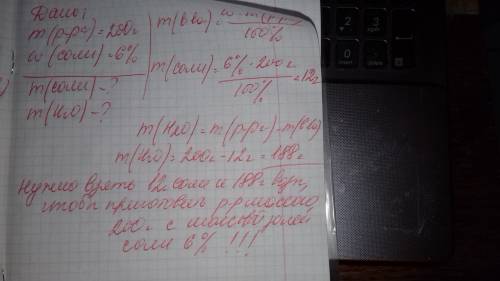 Дано:
m(р-ра) = 200г
ω(соли) = 6%
m(соли) - ?
m(H2O) - ?
m(в-ва) = ω · m(р-ра) / 100%
m(соли) = 6% · 200г / 100% = 12г
m(H2O) = m(р-ра) - m(в-ва)
m(H2O) = 200г - 12г = 188г
Нужно взять 12г соли и 188г
чтоб приготовить р-р массой
200г с массовой долей
соли 6% !!!
2
3
0